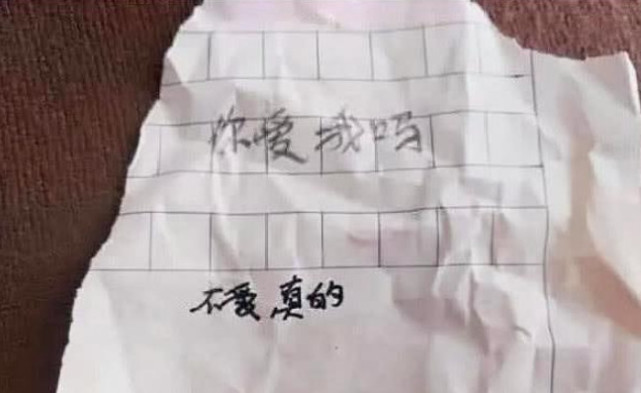 你爱我吗
不爱真的